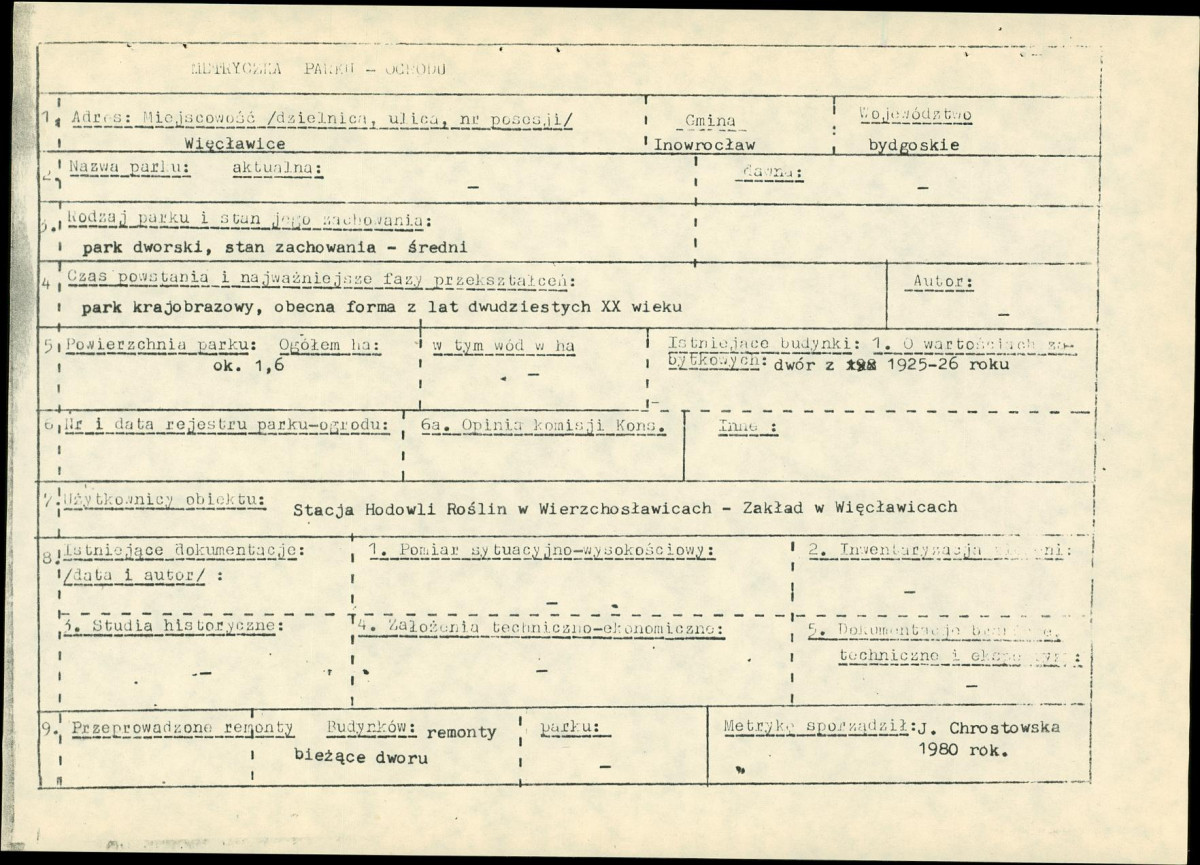 METRYCZKA PARKU - OGRODU
1. Adres: Miejscowość /dzielnica, ulica, nr posesji/
Więcławice
Gmina
Inowrocław
Województwo
bydgoskie
2. Nazwa parku: aktualna:
-
dawna:
-
3. Rodzaj parku i stan jego zachowania:
park dworski, stan zachowania - średni
4 Czas powstania i najważniejsze fazy przekształceń:
park krajobrazowy, obecna forma z lat dwudziestych XX wieku
Autor:
-
5. Powierzchnia parku: Ogółem ha:
ok. 1,6
w tym wód w ha
-
Istniejące budynki: 1. O wartościach za-
bytkowych: dwór z 1925-26 roku
6. Nr i data rejestru parku-ogrodu:
6a. Opinia komisji Kons.
Inne :
7. Użytkownicy obiektu: Stacja Hodowli Roślin w Wierzchosławicach - Zakład w Więcławicach
8. Istniejące dokumentacje:
/data i autor/ :
1. Pomiar sytuacyjno-wysokościowy:
-
2. Inwentaryzacja zieleni:
-
3. Studia historyczne:
-
4. Założenia techniczno-ekonomiczne:
-
5. Dokumentacje
techniczne i
-
9. Przeprowadzone remonty Budynków: remonty
bieżące dworu
parku:
-
Metrykę sporządził: J. Chrostowska
1980 rok.